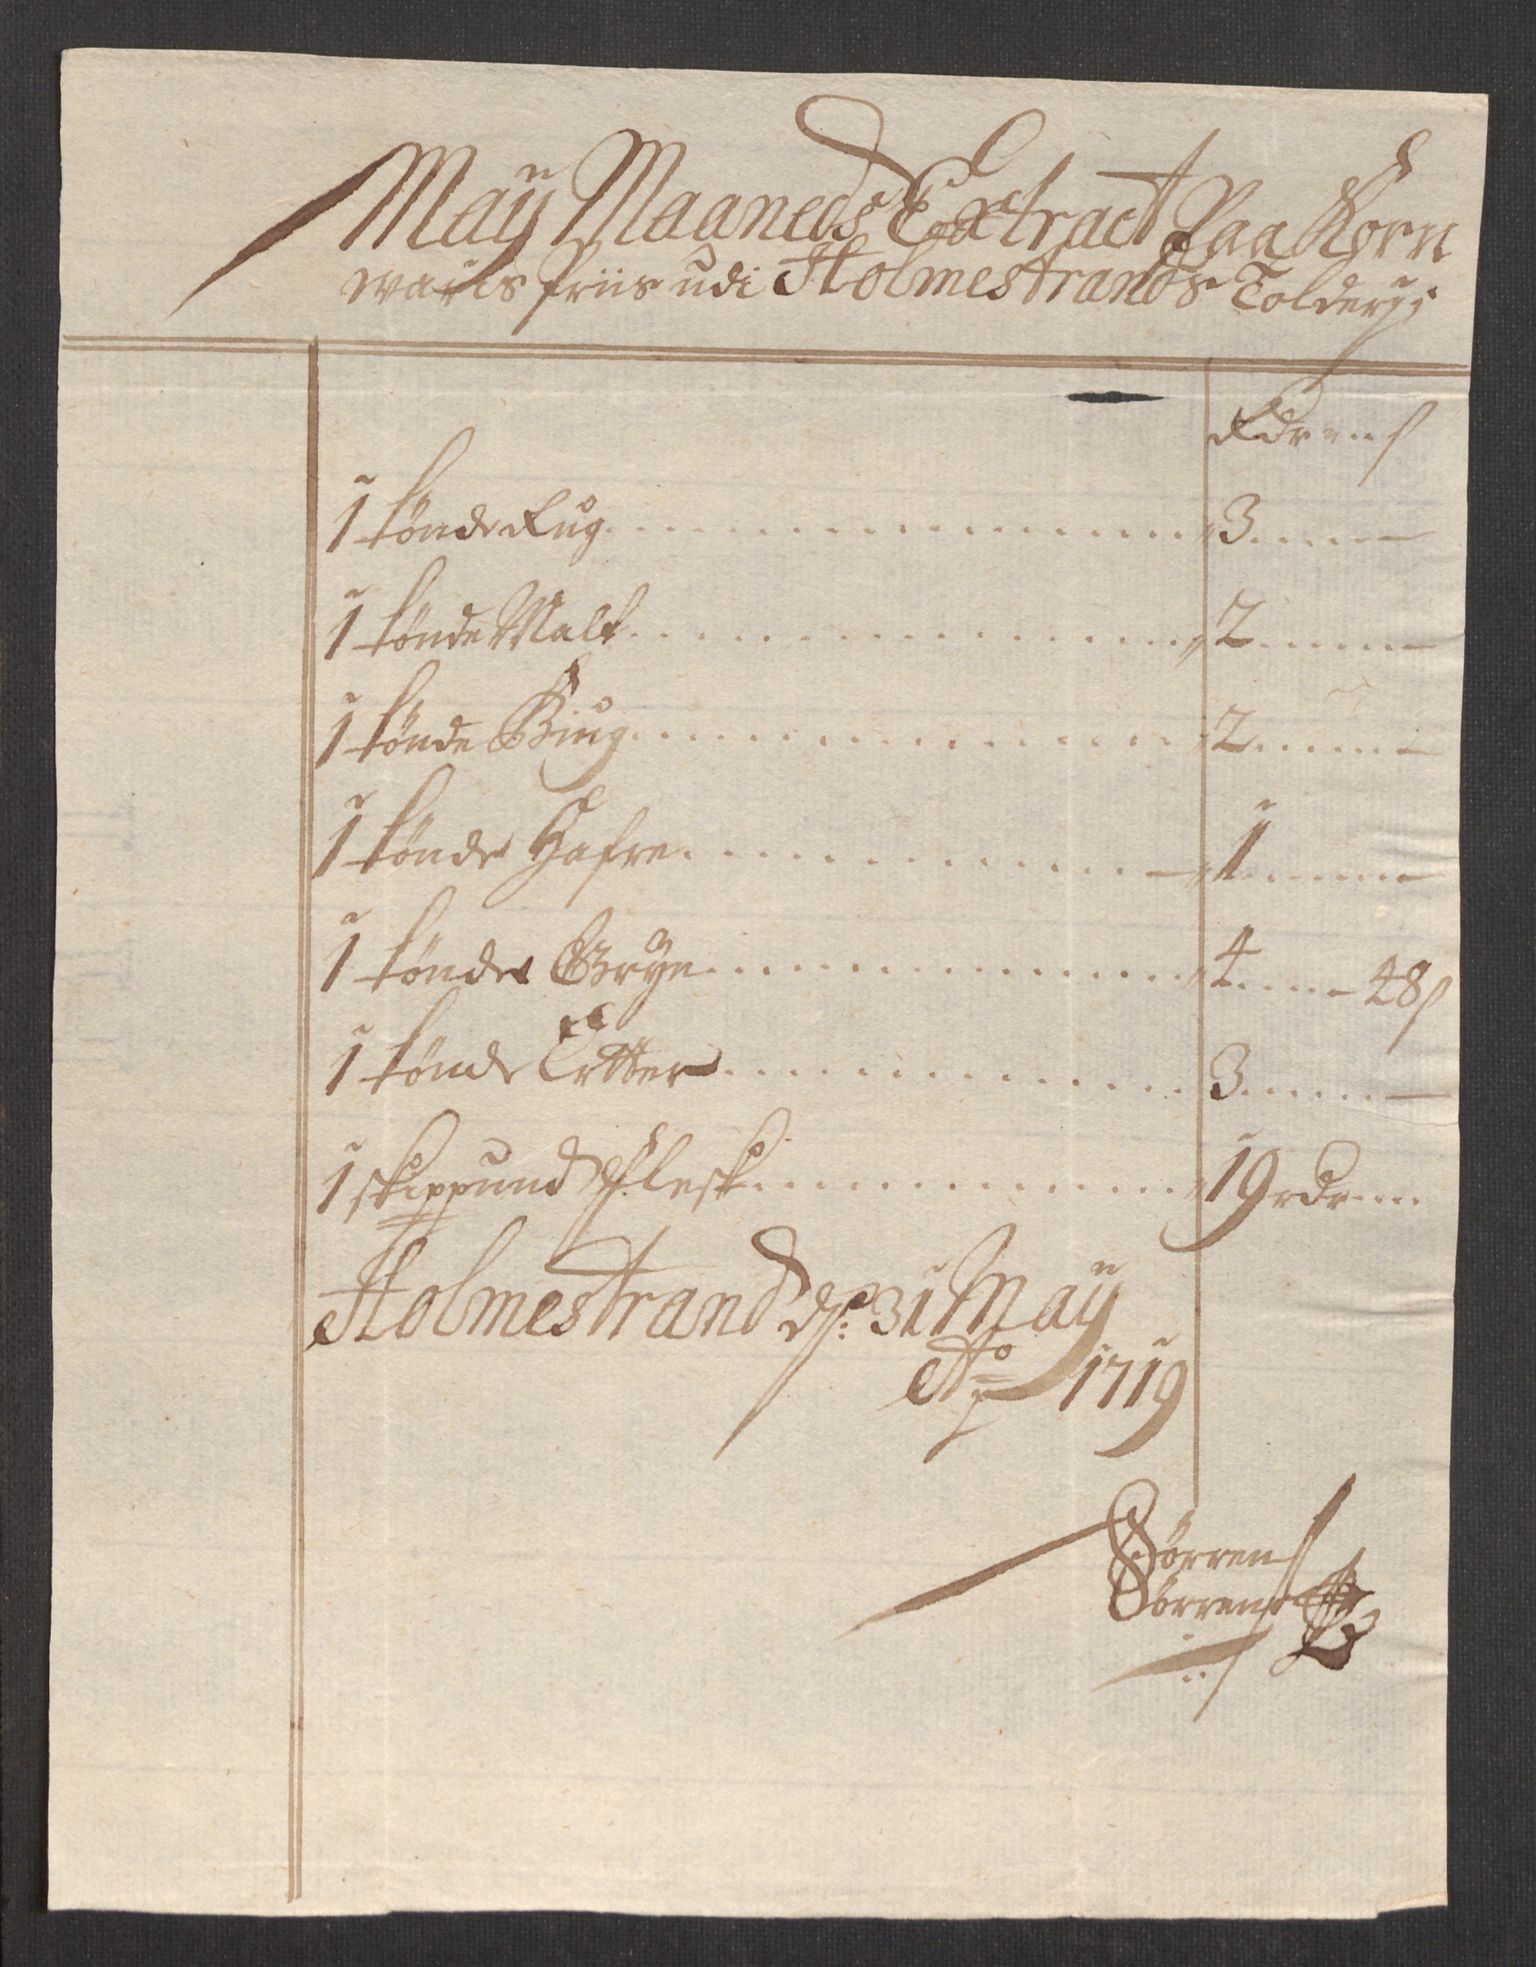 Maÿ Maaneds Extract Paa Korn
waris Priis udi Holmestrands Tolderÿ
Rdr ß
1 tønde Rug 3
1 tønde Malt 2
1 tønde Biug 2
1 tønde Hafre 1
1 tønde Gryn 4 48ß
1 tønde Ertter 3
1 skippund Flesk 19 rdr
Holmestrand dß: 31 Maÿ
Ao 1719
Sørren
Sørrens